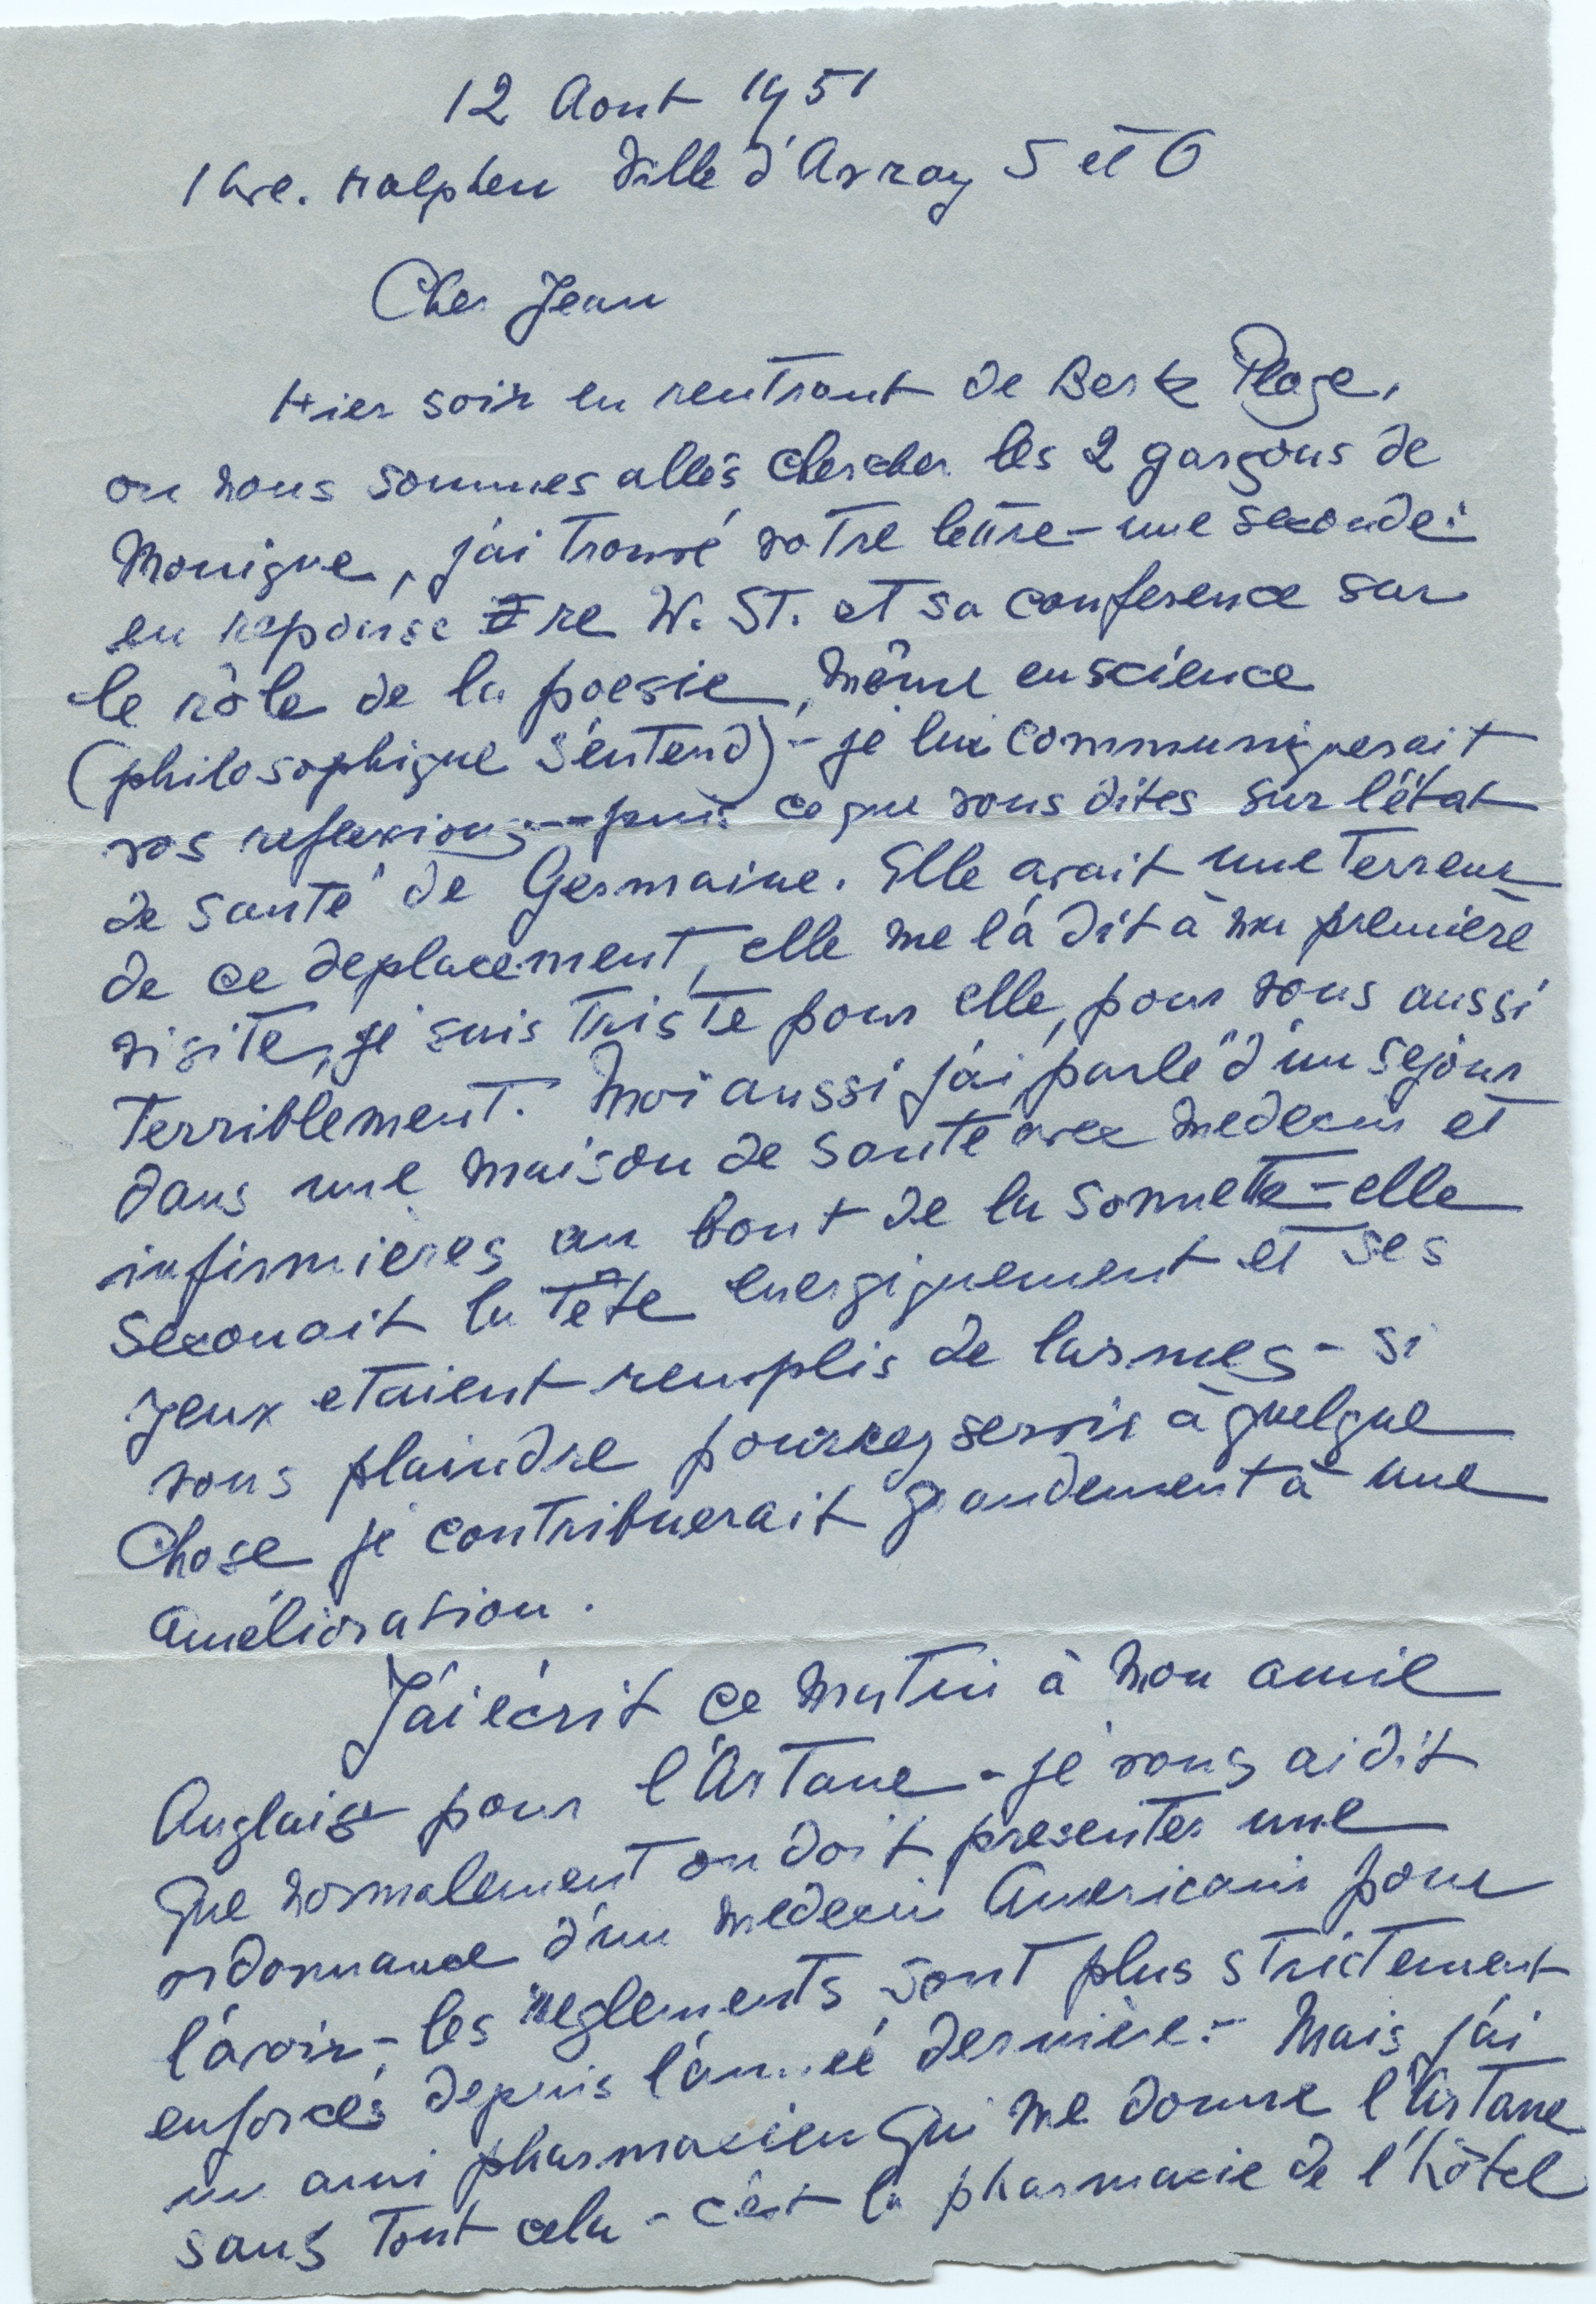 12 Aout 1951
1 Ave. Halphen Ville d'Avray S et O
Cher Jean
Hier soir en rentrant de Berk Plage,
ou nous sommes allés chercher les 2 garçons de
Monique, j'ai trouvé votre lettre - une seconde:
en reponse re W. ST. et sa conference sur
le rôle de la poesie, même en science
(philosophique s'entend) - je lui communiquerait
vos reflexions - puis ce que vous dites sur l'état
de santé de Germaine. Elle avait une terreur
de ce deplacement, elle me l'a dit à ma première
visite, je suis triste pour elle, pour vous aussi
terriblement. Moi aussi j'ai parlé d'un sejour
dans une maison de santé avec medecin et
infirmières au bout de la sonnette - elle
secouait la tête energiquement et ses
yeux etaient remplis de larmes - si
vous plaindre pourrez servir à quelque
chose je contribuerait grandement à une
amélioration.
J'ai écrit ce matin à mon amie
Anglaise pour l'Artane - je vous ai dit
que normalement on doit presenter une
ordonnance d'un medecin Americain pour
l'avoir - les reglements sont plus strictement
enforcés depuis l'année dernière - Mais j'ai
un ami pharmacien qui me donne l'Artane
sans tout cela - c'est la pharmacie de l'hôtel